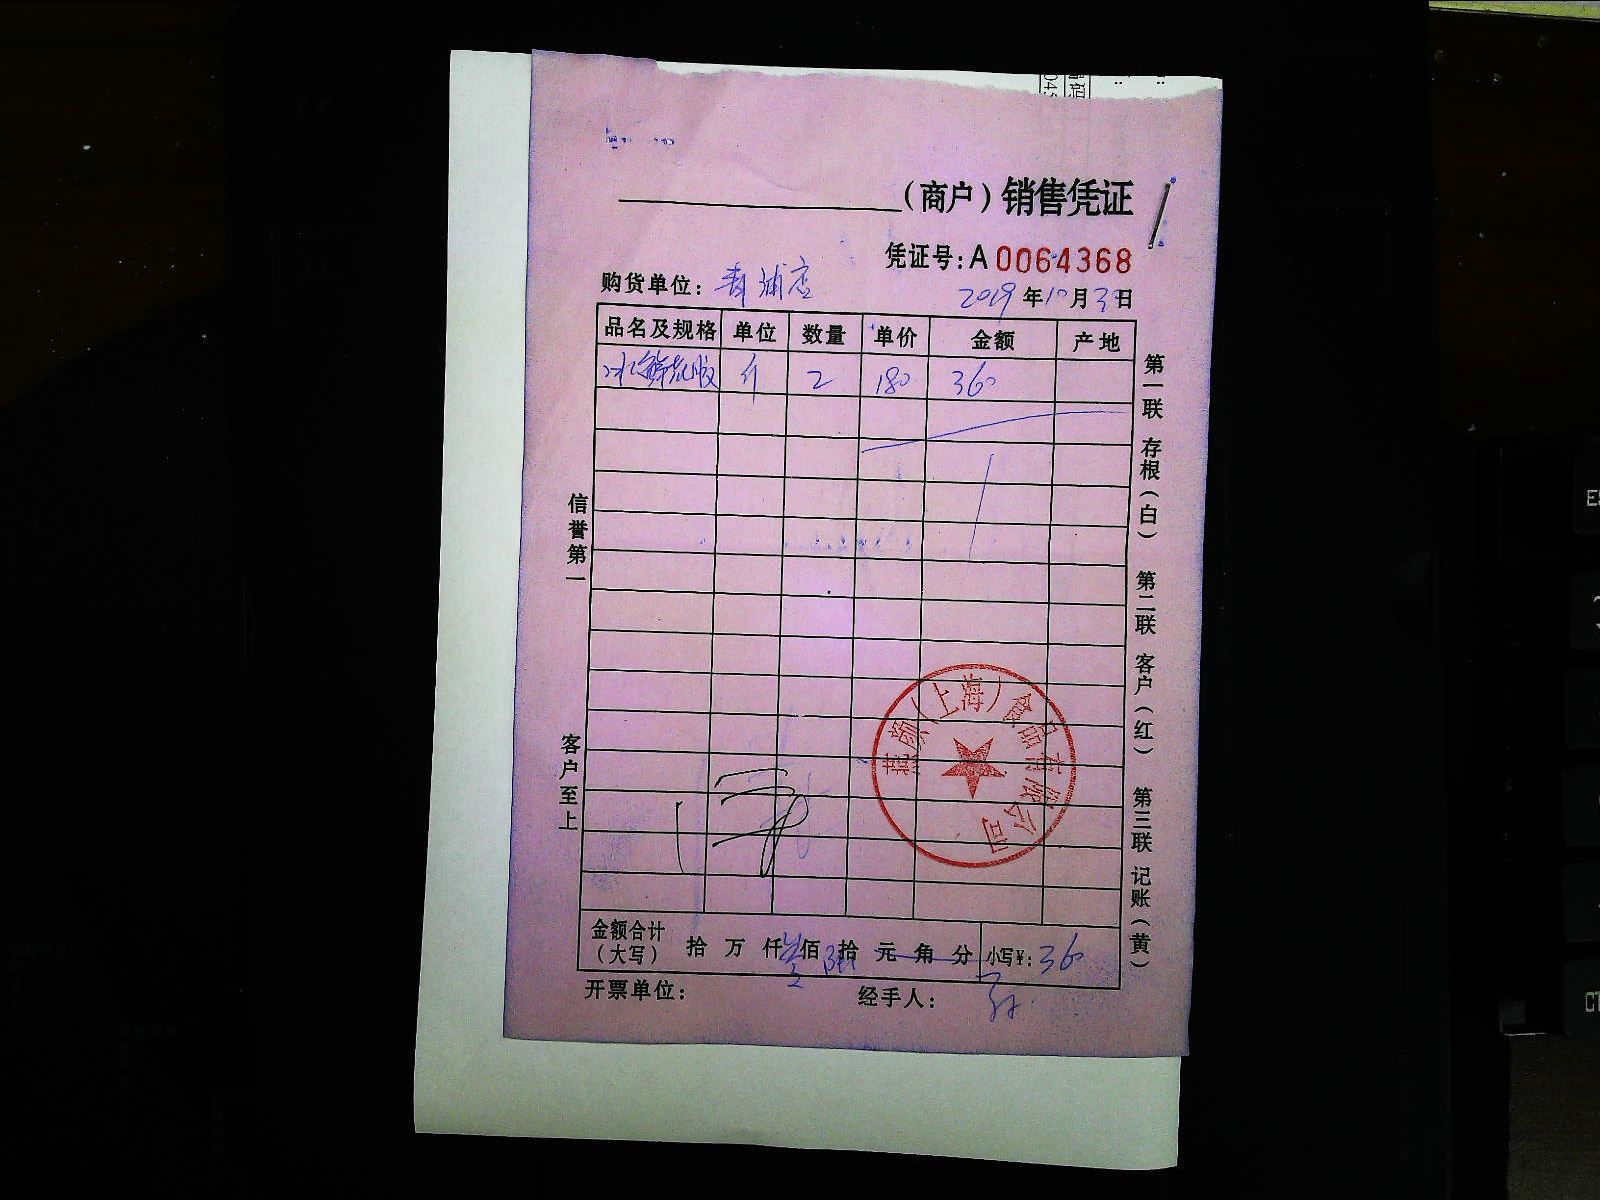 （商户）销售凭证
凭证号：A 0064368
购货单位：青浦店 2019年10月30日
品名及规格 单位 数量 单价 金额 产地
冰鲜花胶 斤 2 180 360
金额合计（大写） 拾 万 仟 叁佰 陆拾 元 角 分 小写¥：360
开票单位： 经手人：
信誉第一
客户至上
第一联 存根（白） 第二联 客户（红） 第三联 记账（黄）
燕颜（上海）食品有限公司